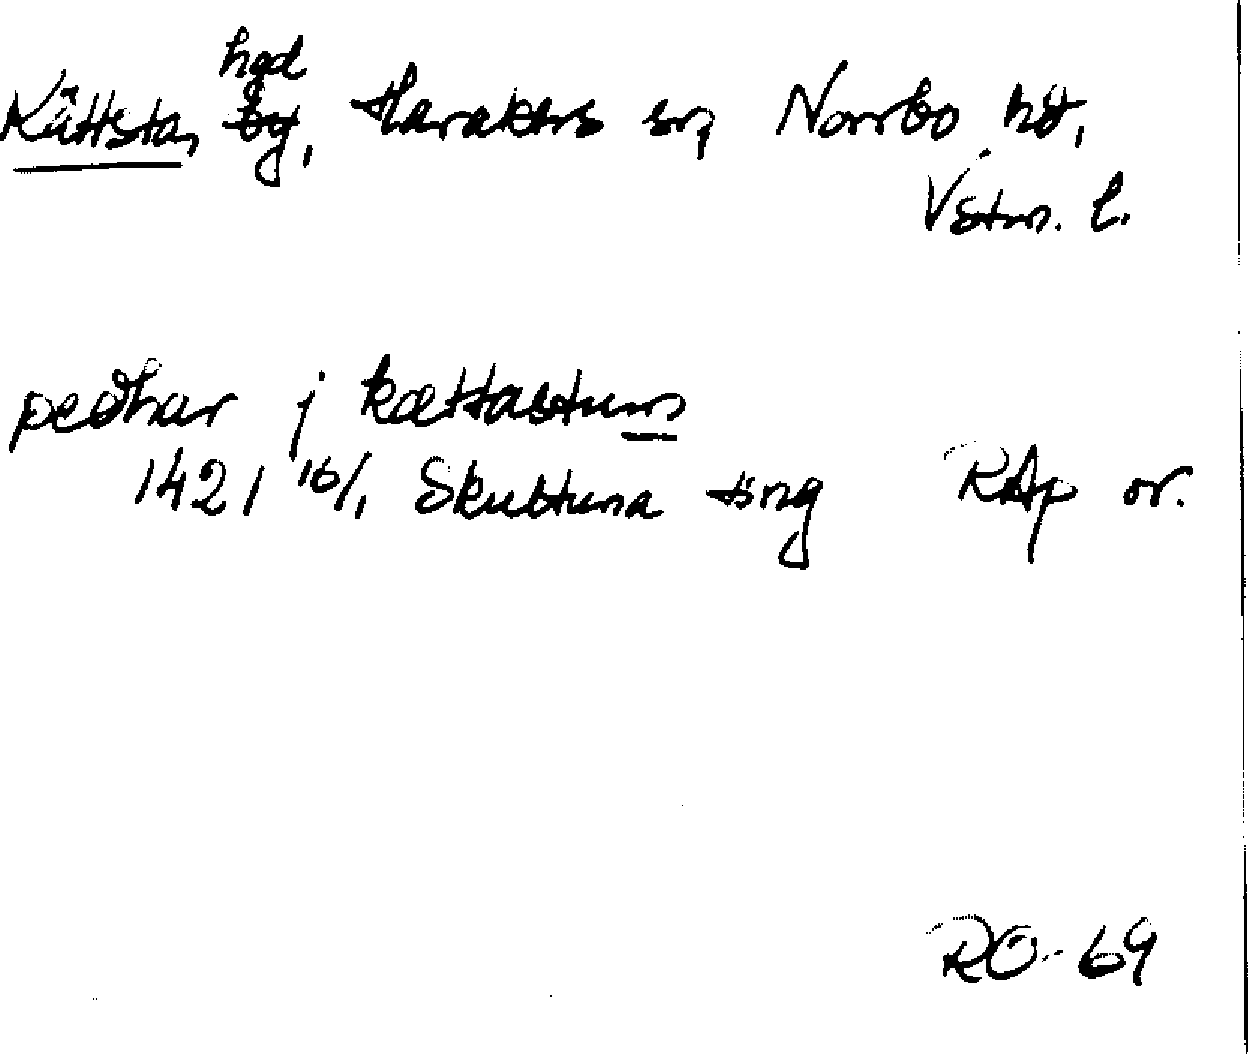 Kättsta, hgd by, Harakers sn, Norrbo hd,
Vstm. l.
pedhar j kættastum
1421 16/1 Skultuna tsng RAp or.
RO-69